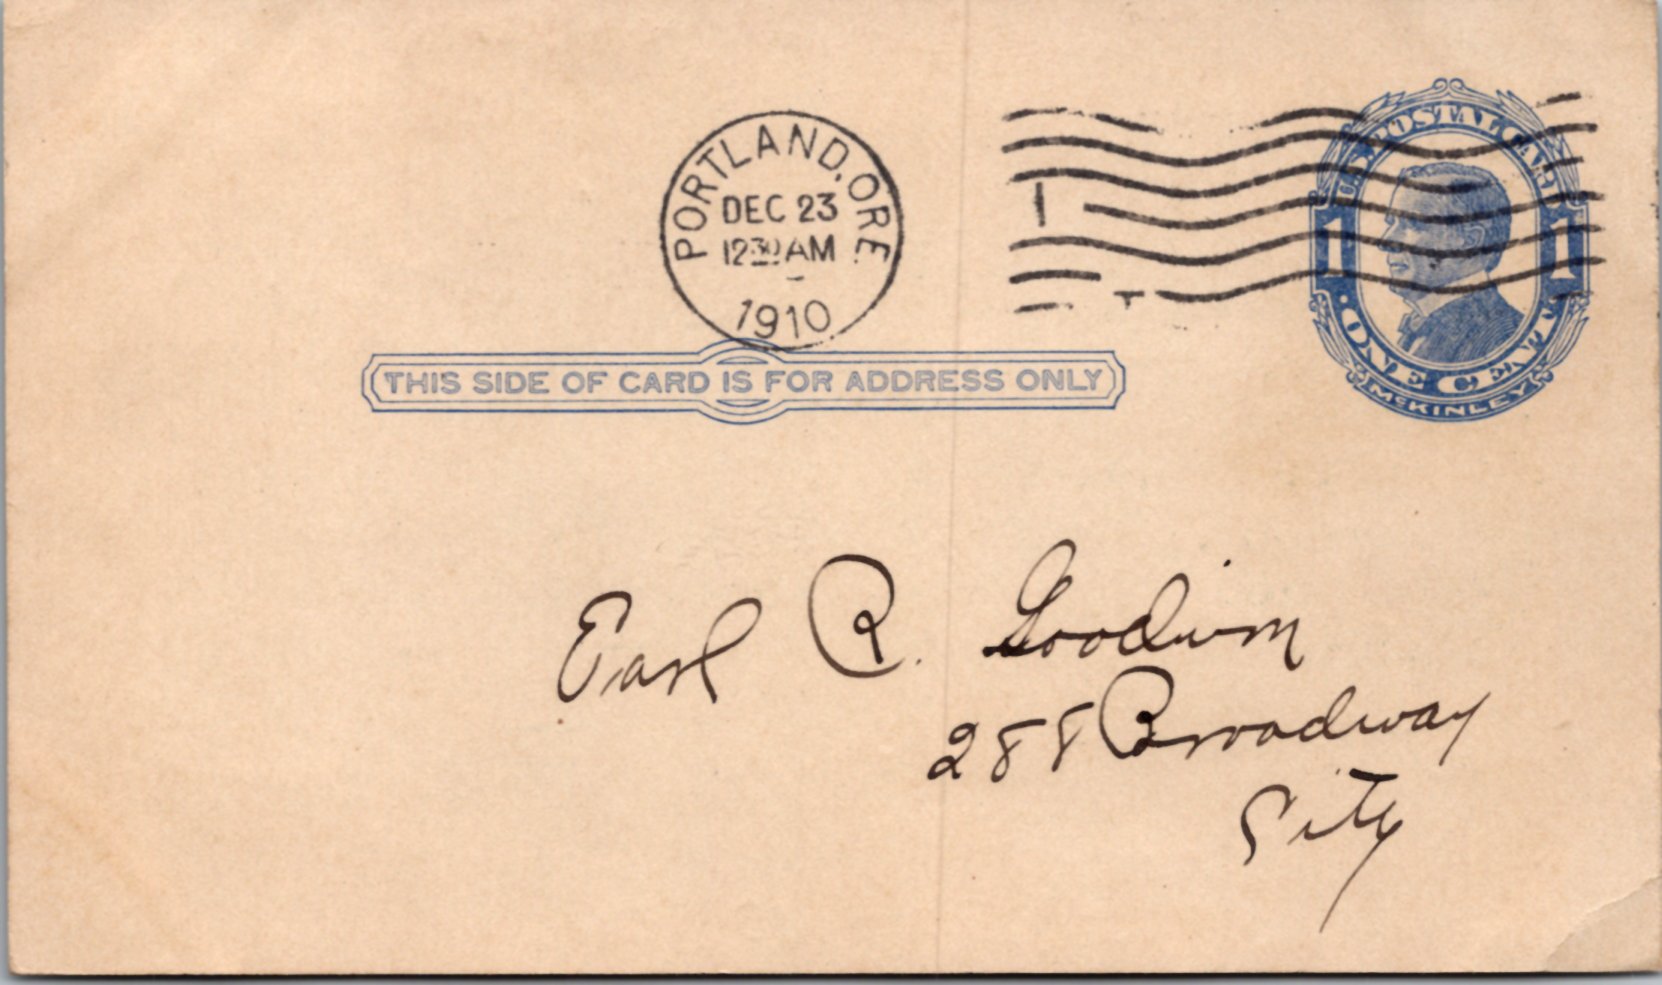 PORTLAND, ORE.
DEC 23
12 30 AM
1910
U.S. POSTAL CARD
1 1
· ONE CENT ·
McKINLEY
THIS SIDE OF CARD IS FOR ADDRESS ONLY
Earl R. Goodwin
288 Broadway
City